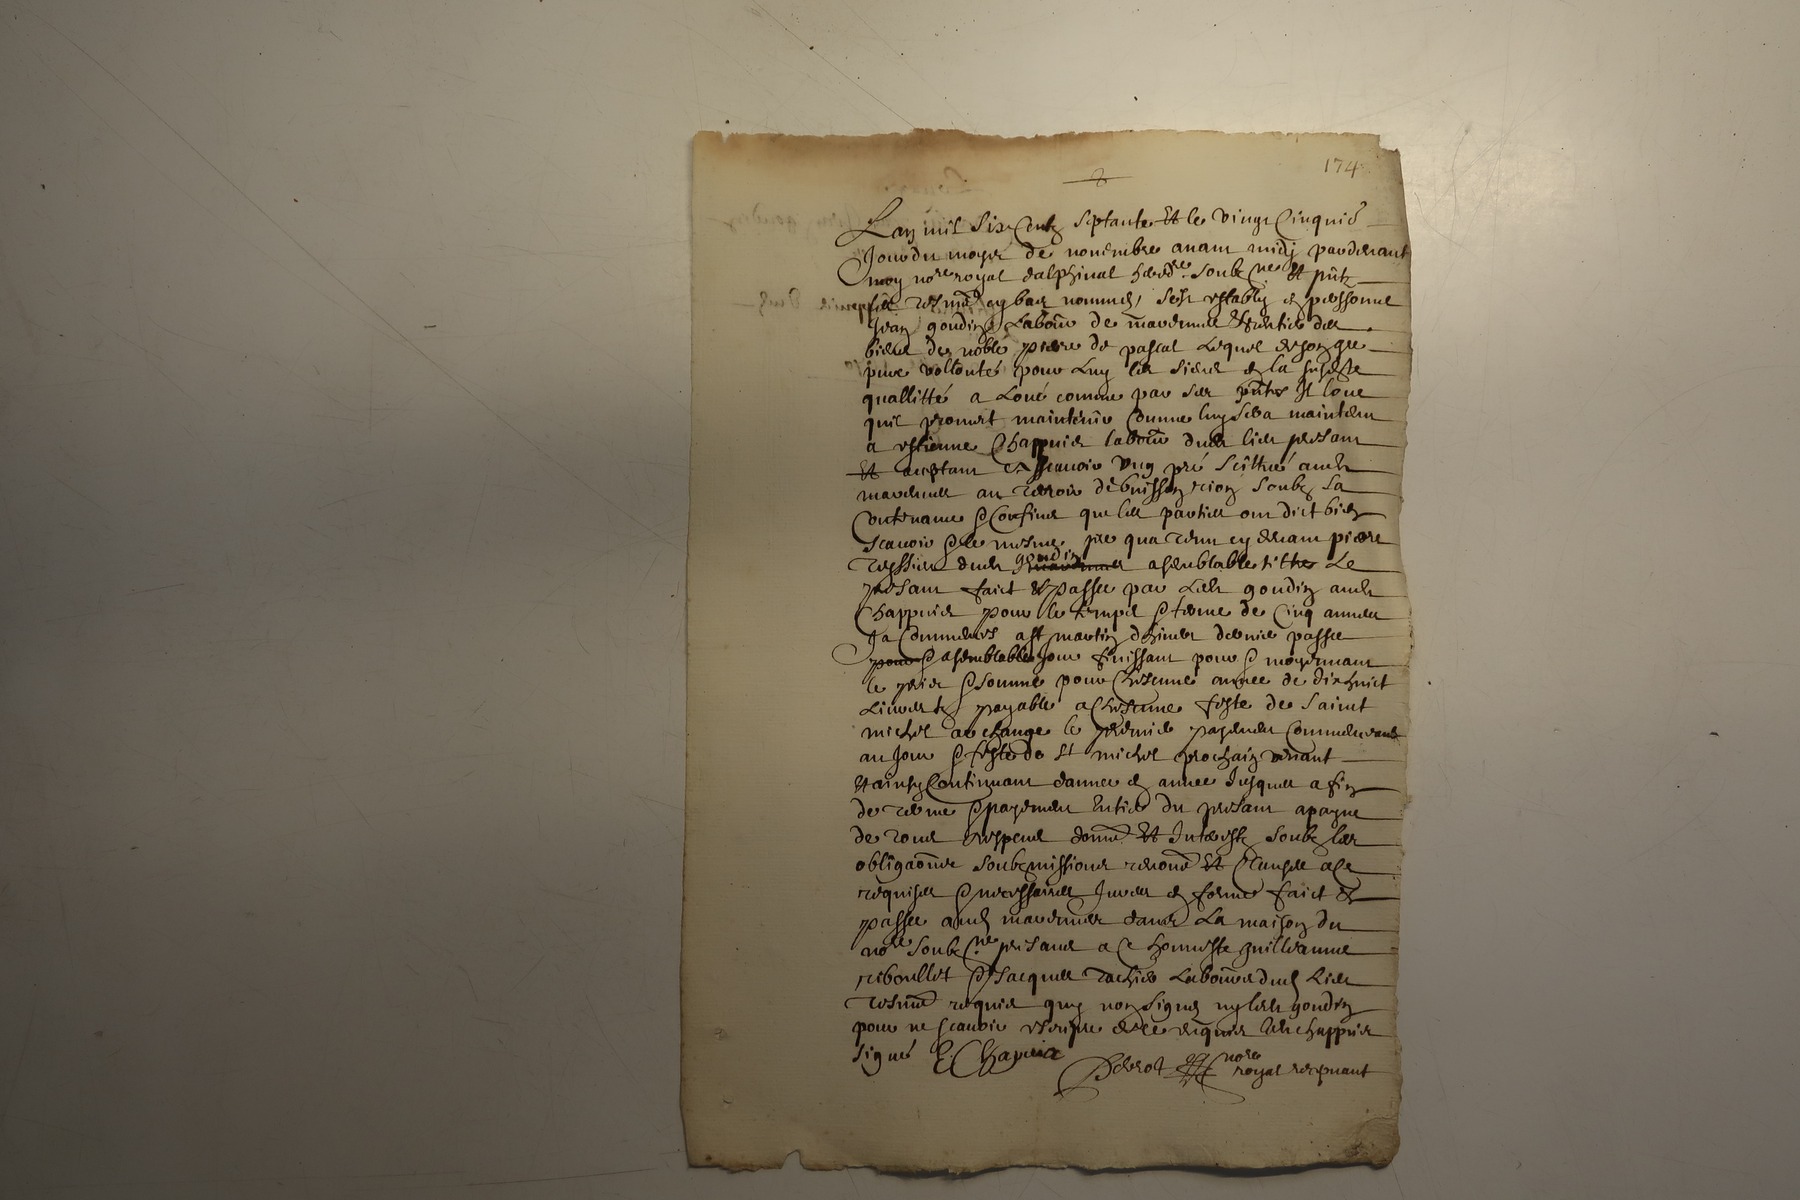 174
Lan mil Six Centz Septante Et le vingt Cinquie
Jour du moys de novembre avant midj pardevant
moy nore royal dalphinal hered.re Soubz.ne Et puts
tesmo cy bas nommes, Sest estably en personne
Jean goudin Labour de
biens de noble pierre de pascal Lequel de son gre
pure vollonté pour Luy les Siens en la susdite
quallitté a Loué comme par Ses pntes Il loue
quil promet maintenir Comme luy Sera maintenu
a estienne Chappuis labour dud lieu presant
Et aceptant Ascavoir Ung pré Scittué aud
au terroir de Soubz Sa
Contenance & Confins que les parties ont dict bien
Scavoir & le mesme pre qua tenu cy devant pierre
goudin
a semblable tiltre Le
presant faict & passe par Led goudin aud
Chappuis pour le temps & terme de Cinq annees
Ja Commences a st martin dhiver dernier passe
pour & a semblable Jour finissant pour & moyennant
le prix & Somme pour Chescune annee de dixhuict
Livres tz payable a Chescune feste de Saint
michel archange le premier payement Commencant
au Jour & feste de St michel prochain venant
Et ainsy Continuant dannee en annee Jusques a fin
de terme & payement Entier du presant a payne
de tous despens dom Et Interestz Soubz les
obliga\ons Soubzmissions renon Et Clauses a Ce
requises & necessaires Jures en forme faict &
passe aud dans La maison du
nore Soubz.ne presans a Ce honneste guilleaume
riboullet & Jacques Labours dud Lieu
tesmo requis quy non Signes ny led goudin
pour ne scavoir escripre de ce requis led chappuis
Signé E. Chapuis
Perrot nore
royal recepvant